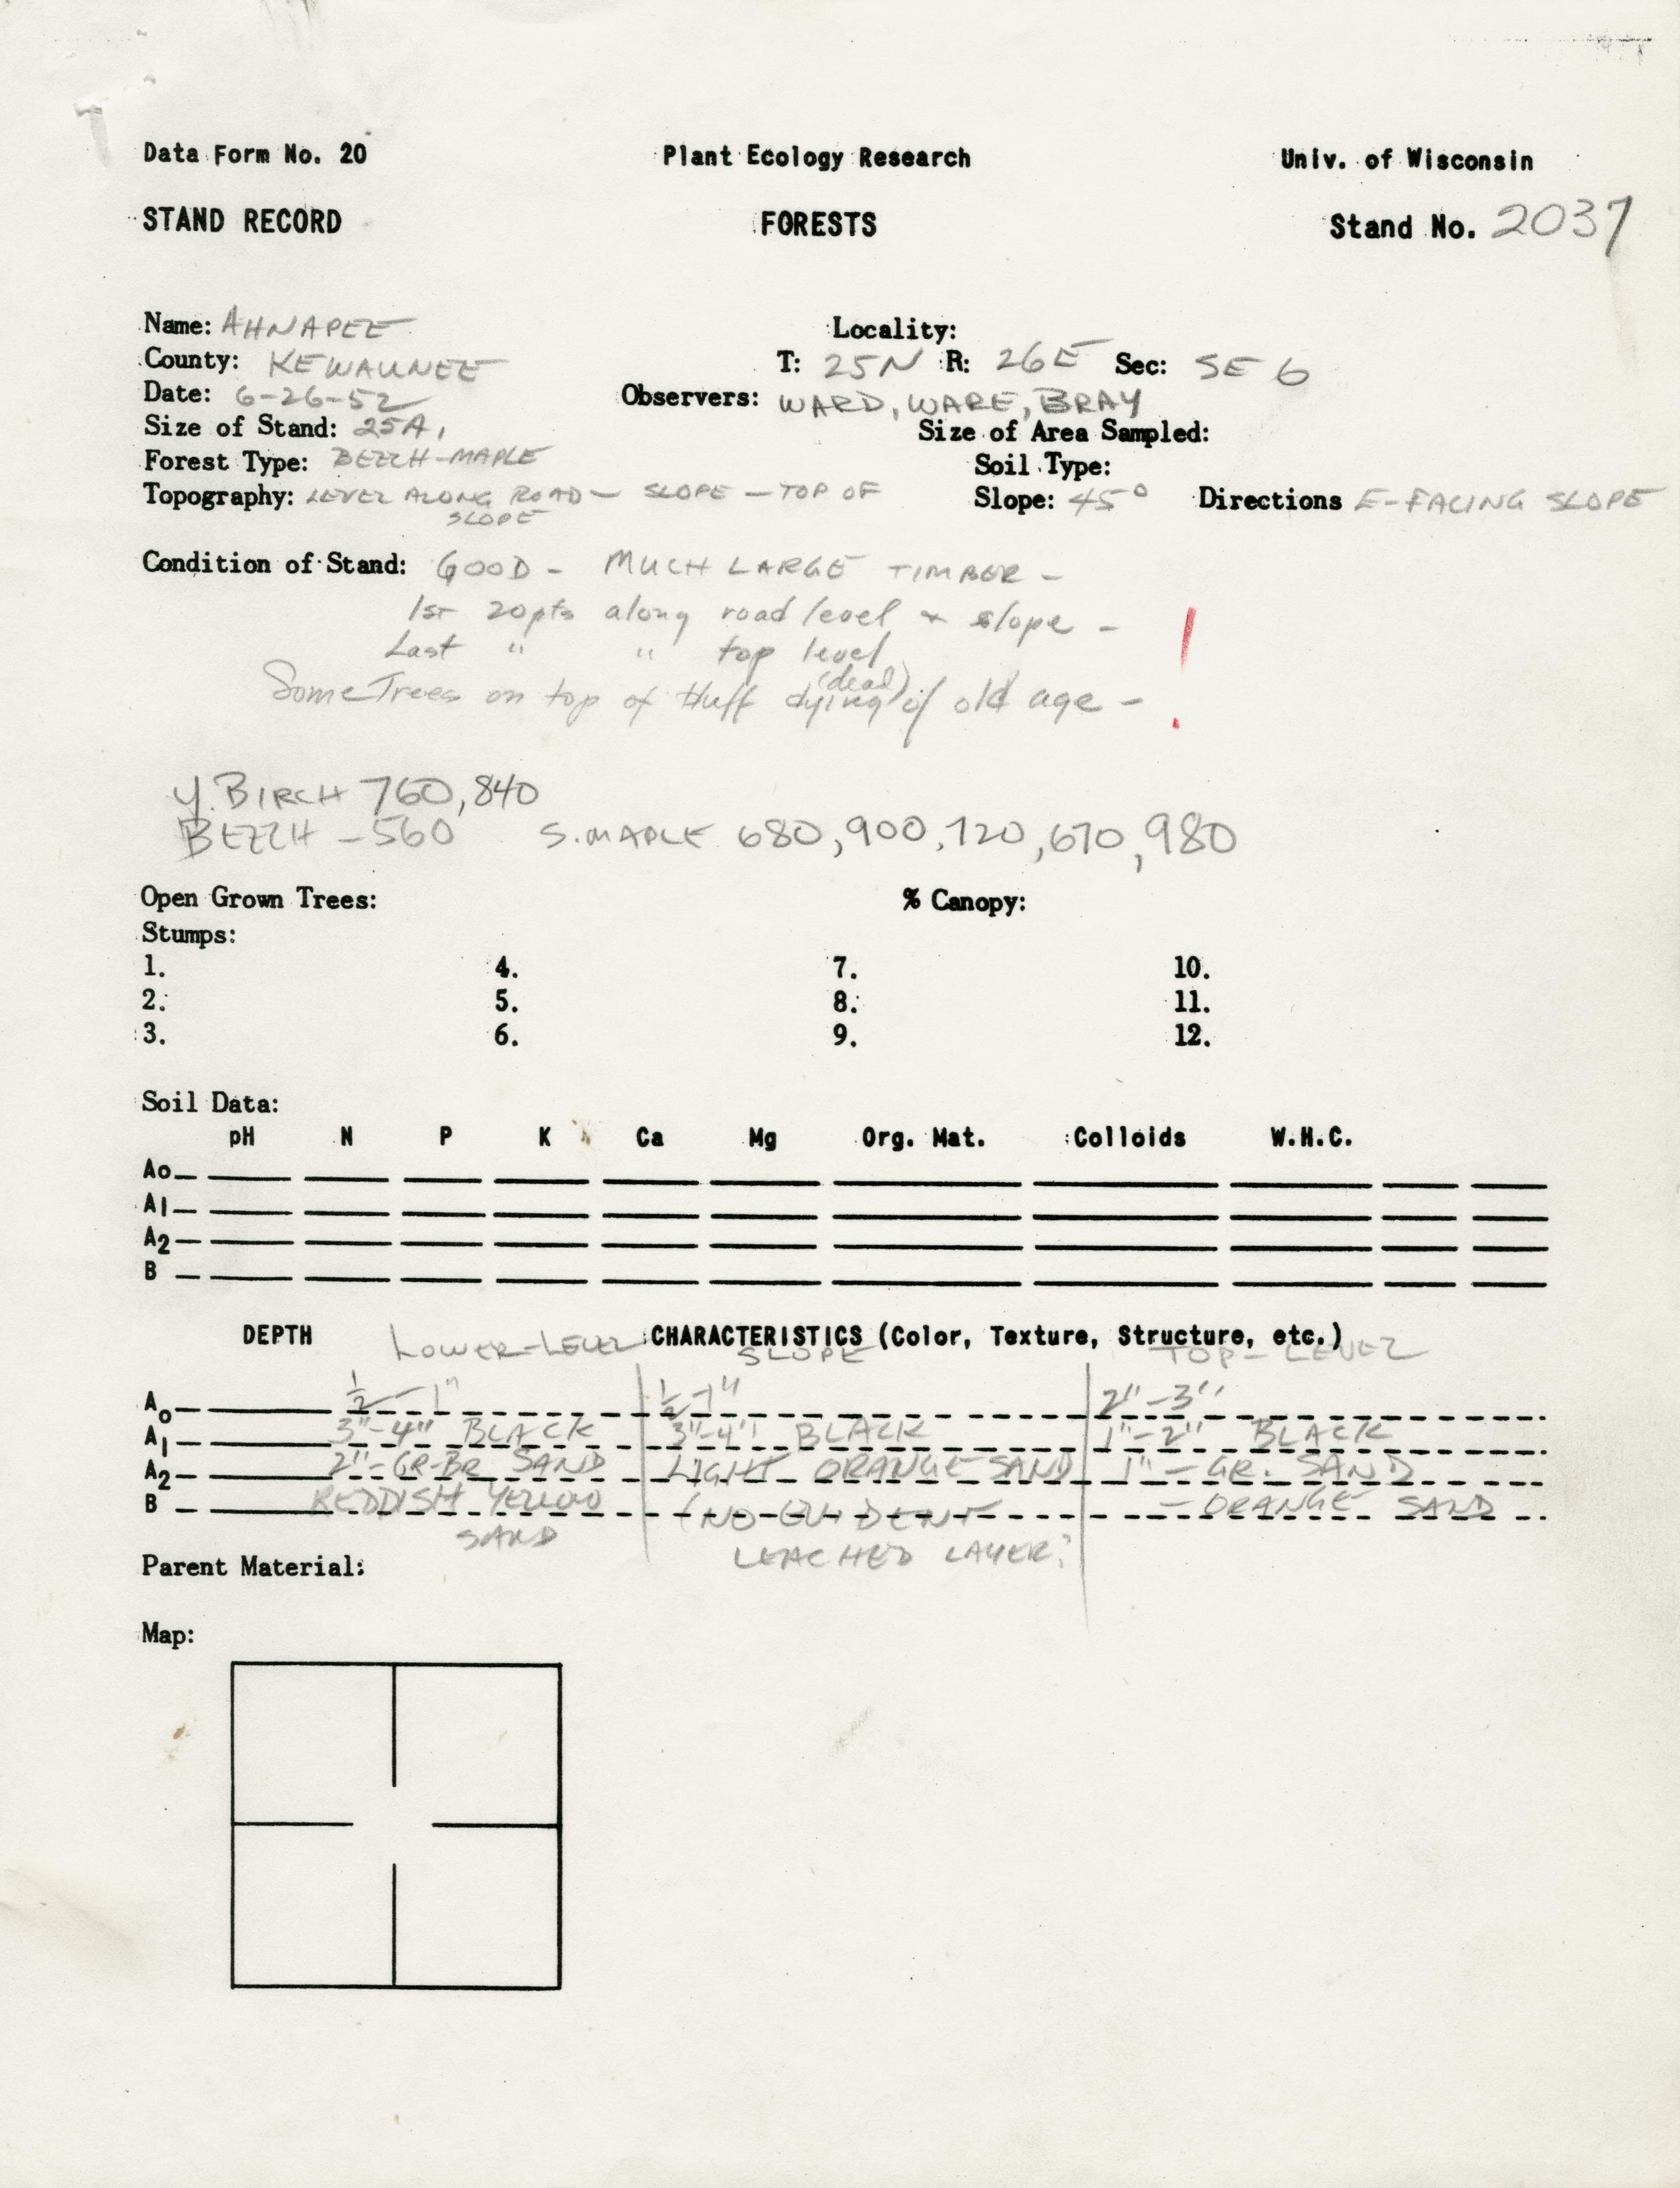 Data Form No. 20 Plant Ecology Research Univ. of Wisconsin
STAND RECORD FORESTS Stand No. 2037
Name: AHNAPEE Locality:
County: KEWAUNEE T: 25N R: 26E Sec: SE 6
Date: 6-26-52 Observers: WARD, WARE, BRAY
Size of Stand: 25A. Size of Area Sampled:
Forest Type: BEECH-MAPLE Soil Type:
Topography: LEVEL ALONG ROAD - SLOPE - TOP OF Slope: 45° Directions E-FACING SLOPE
SLOPE
Condition of Stand: GOOD - MUCH LARGE TIMBER -
1st 20pts along road level & slope -
Last " " top level
(dead)
Some Trees on top of bluff dying of old age - !
Y. BIRCH 760, 840
BEECH - 560 S. MAPLE 680, 900, 720, 670, 980
Open Grown Trees: % Canopy:
Stumps:
1. 4. 7. 10.
2. 5. 8. 11.
3. 6. 9. 12.
Soil Data:
pH N P K Ca Mg Org. Mat. Colloids W.H.C.
Ao
A1
A2
B
DEPTH CHARACTERISTICS (Color, Texture, Structure, etc.)
LOWER-LEVEL SLOPE TOP-LEVEL
Ao ½-1" ½-1" 2"-3"
A1 3"-4" BLACK 3"-4" BLACK 1"-2" BLACK
A2 2"-GR-BR SAND LIGHT ORANGE SAND 1"-GR. SAND
B REDDISH YELLOW (NO EVIDENT - ORANGE SAND
SAND LEACHED LAYER?
Parent Material:
Map: